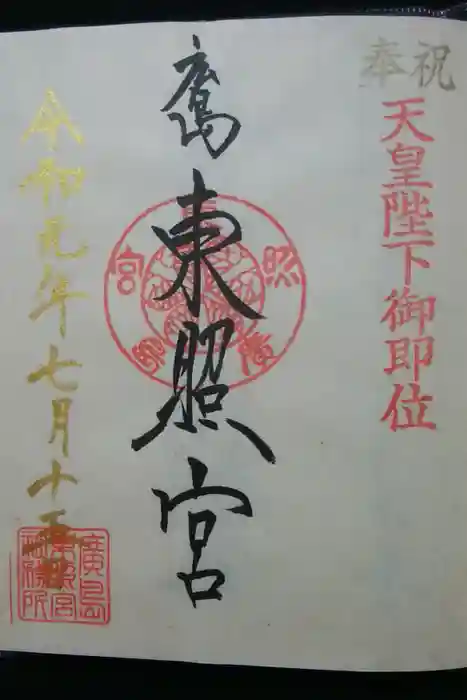 奉祝
天皇陛下御即位
廣島
東照宮
令和元年七月十五日
廣島
東照宮
社務所